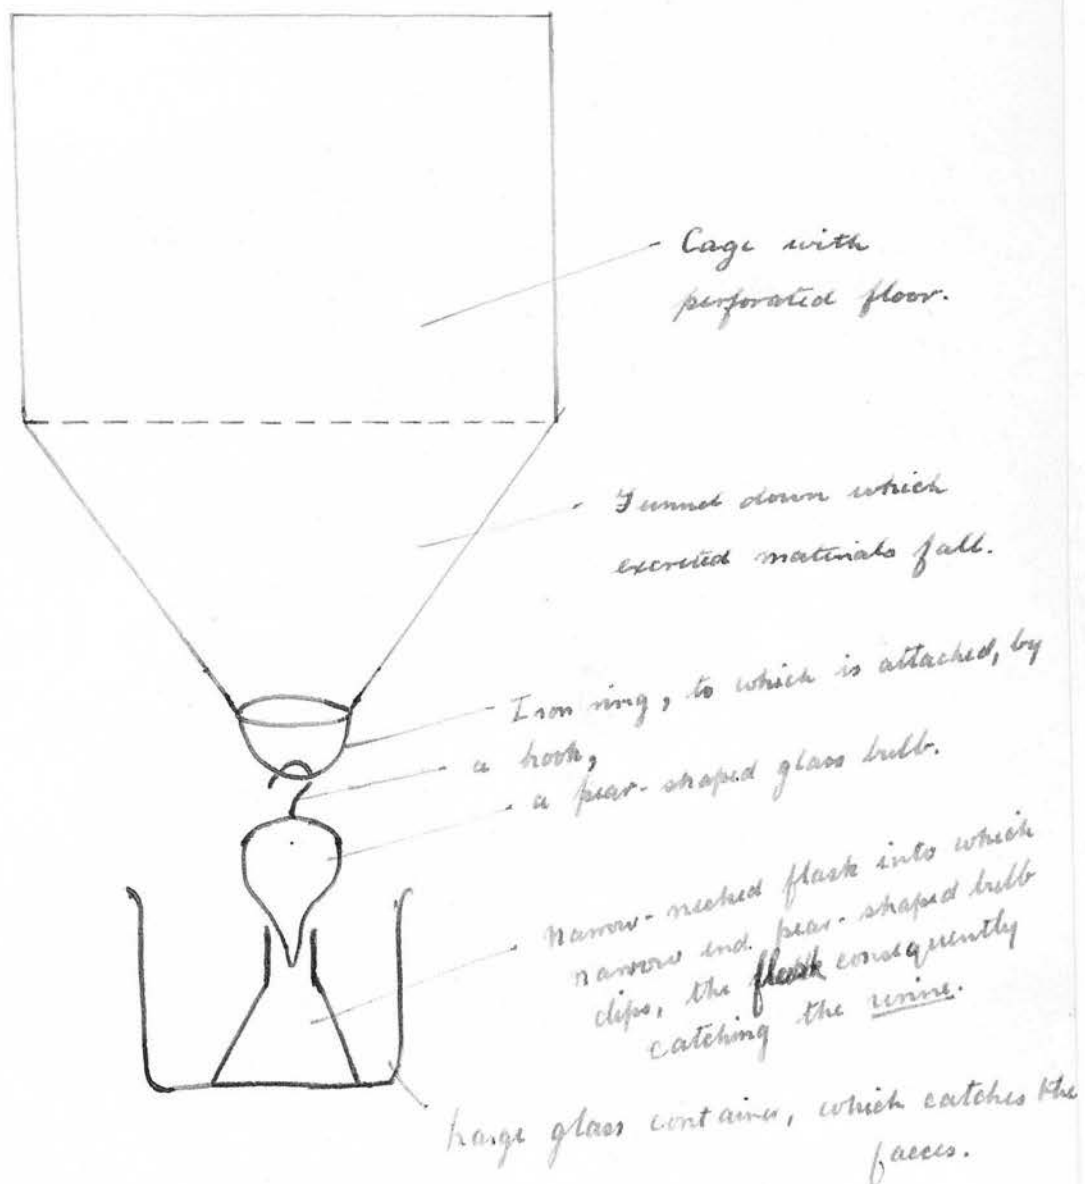 Cage with
perforated floor.
Funnel down which
excreted materials fall.
Iron ring, to which is attached, by
a hook,
a pear-shaped glass bulb.
Narrow-necked flask into which
narrow end pear-shaped bulb
dips, the flask consequently
catching the urine.
Large glass container, which catches the
faeces.